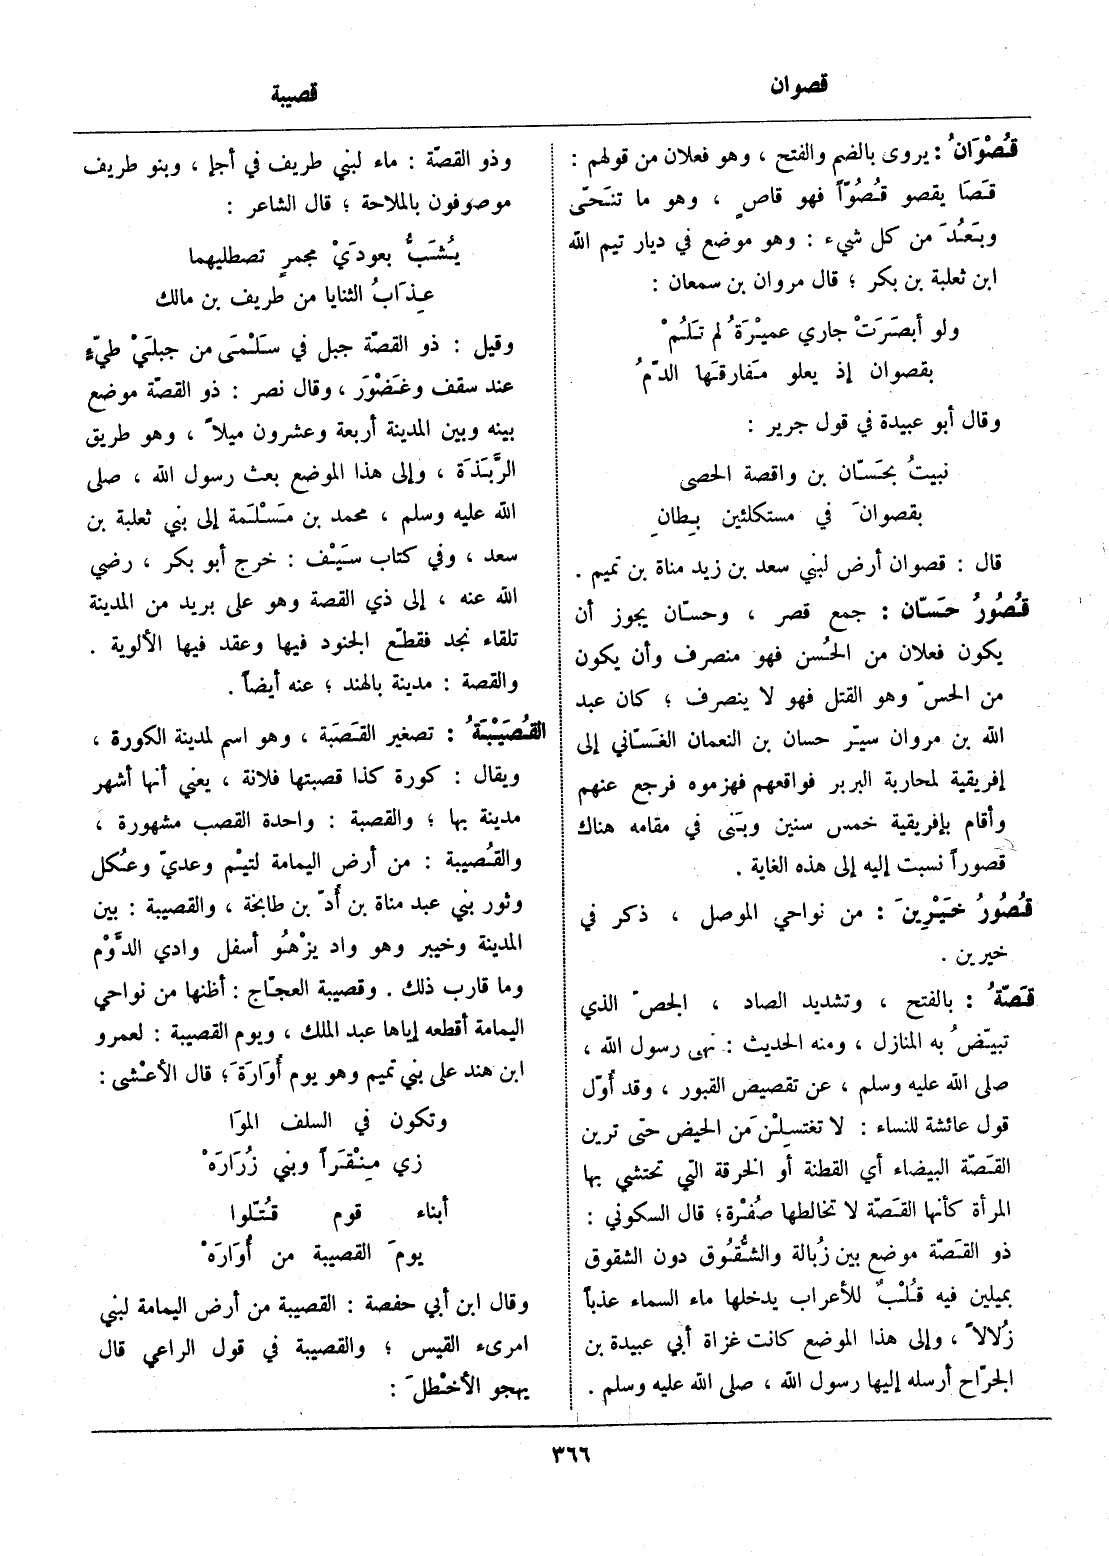 قصوان
قصيبة
قُصْوَانُ : يروى بالضم والفتح ، وهو فعلان من قولهم :
قَصَا يقصو قُصُوّاً فهو قاصٍ ، وهو ما تنَحّى
وبَعُدَ من كل شيء : وهو موضع في ديار تيم الله
ابن ثعلبة بن بكر ؛ قال مروان بن سمعان :
ولو أبصَرَتْ جاري عميْرَةُ لم تَلُمْ
بقصوان إذ يعلو مَفارقَها الدّمُ
وقال أبو عبيدة في قول جرير :
نبيتُ بحَسّان بن واقصة الحصى
بقصوانَ في مستكلئين بِطانِ
قال : قصوان أرض لبني سعد بن زيد مناة بن تميم .
قُصُورُ حَسّان : جمع قصر ، وحسّان يجوز أن
يكون فعلان من الحُسن فهو منصرف وأن يكون
من الحسّ وهو القتل فهو لا ينصرف ؛ كان عبد
الله بن مروان سيّر حسان بن النعمان الغَسّاني إلى
إفريقية لمحاربة البربر فواقعهم فهزموه فرجع عنهم
وأقام بإفريقية خمس سنين وبَنى في مقامه هناك
قصوراً نسبت إليه إلى هذه الغاية .
قُصُورُ خَيْرِينَ : من نواحي الموصل ، ذكر في
خيرين .
قَصّةُ : بالفتح ، وتشديد الصاد ، الجصّ الذي
تبيّضُ به المنازل ، ومنه الحديث : نهى رسول الله ،
صلى الله عليه وسلم ، عن تقصيص القبور ، وقد أُوّل
قول عائشة للنساء : لا تغتسِلْنَ من الحيض حتى ترين
القَصّة البيضاء أي القطنة أو الخرقة التي تحتشي بها
المرأة كأنها القَصّة لا تخالطها صُفْرة ؛ قال السكوني :
ذو القَصّة موضع بين زُبالة والشُّقُوق دون الشقوق
بميلين فيه قُلْبٌ للأعراب يدخلها ماء السماء عذباً
زُلالاً ، وإلى هذا الموضع كانت غزاة أبي عبيدة بن
الجرّاح أرسله إليها رسول الله ، صلى الله عليه وسلم .
وذو القصّة : ماء لبني طريف في أجإ ، وبنو طريف
موصوفون بالملاحة ؛ قال الشاعر :
يُشَبُّ بعودَيْ مجمرٍ تصطليهما
عِذَابُ الثنايا من طريف بن مالك
وقيل : ذو القصّة جبل في سَلْمَى من جبلَيْ طيّءٍ
عند سقف وغَضْوَر ، وقال نصر : ذو القصّة موضع
بينه وبين المدينة أربعة وعشرون ميلاً ، وهو طريق
الرَّبَذَة ، وإلى هذا الموضع بعث رسول الله ، صلى
الله عليه وسلم ، محمد بن مَسْلَمة إلى بني ثعلبة بن
سعد ، وفي كتاب سَيْف : خرج أبو بكر ، رضي
الله عنه ، إلى ذي القصة وهو على بريد من المدينة
تلقاء نجد فقطّع الجنود فيها وعقد فيها الألوية .
والقصة : مدينة بالهند ؛ عنه أيضاً .
القُصَيْبَةُ : تصغير القَصَبة ، وهو اسم لمدينة الكورة ،
ويقال : كورة كذا قصبتها فلانة ، يعني أنها أشهر
مدينة بها ؛ والقصبة : واحدة القصب مشهورة ،
والقُصيبة : من أرض اليمامة لتيْم وعديّ وعُكل
وثور بني عبد مناة بن أُدّ بن طابخة ، والقصيبة : بين
المدينة وخيبر وهو واد يزْهُو أسفل وادي الدَّوْم
وما قارب ذلك . وقصيبة العجّاج : أظنها من نواحي
اليمامة أقطعه إياها عبد الملك ، ويوم القصيبة : لعمرو
ابن هند على بني تميم وهو يوم أُوَارَةَ ؛ قال الأعْشى :
وتكون في السلف المُوَا
زي مِنْقَراً وبني زُرَارَهْ
أبناء قوم قُتّلوا
يومَ القصيبة من أُوَارَهْ
وقال ابن أبي حفصة : القصيبة من أرض اليمامة لبني
امرىء القيس ؛ والقصيبة في قول الراعي قال
يهجو الأخْطلَ :
٣٦٦